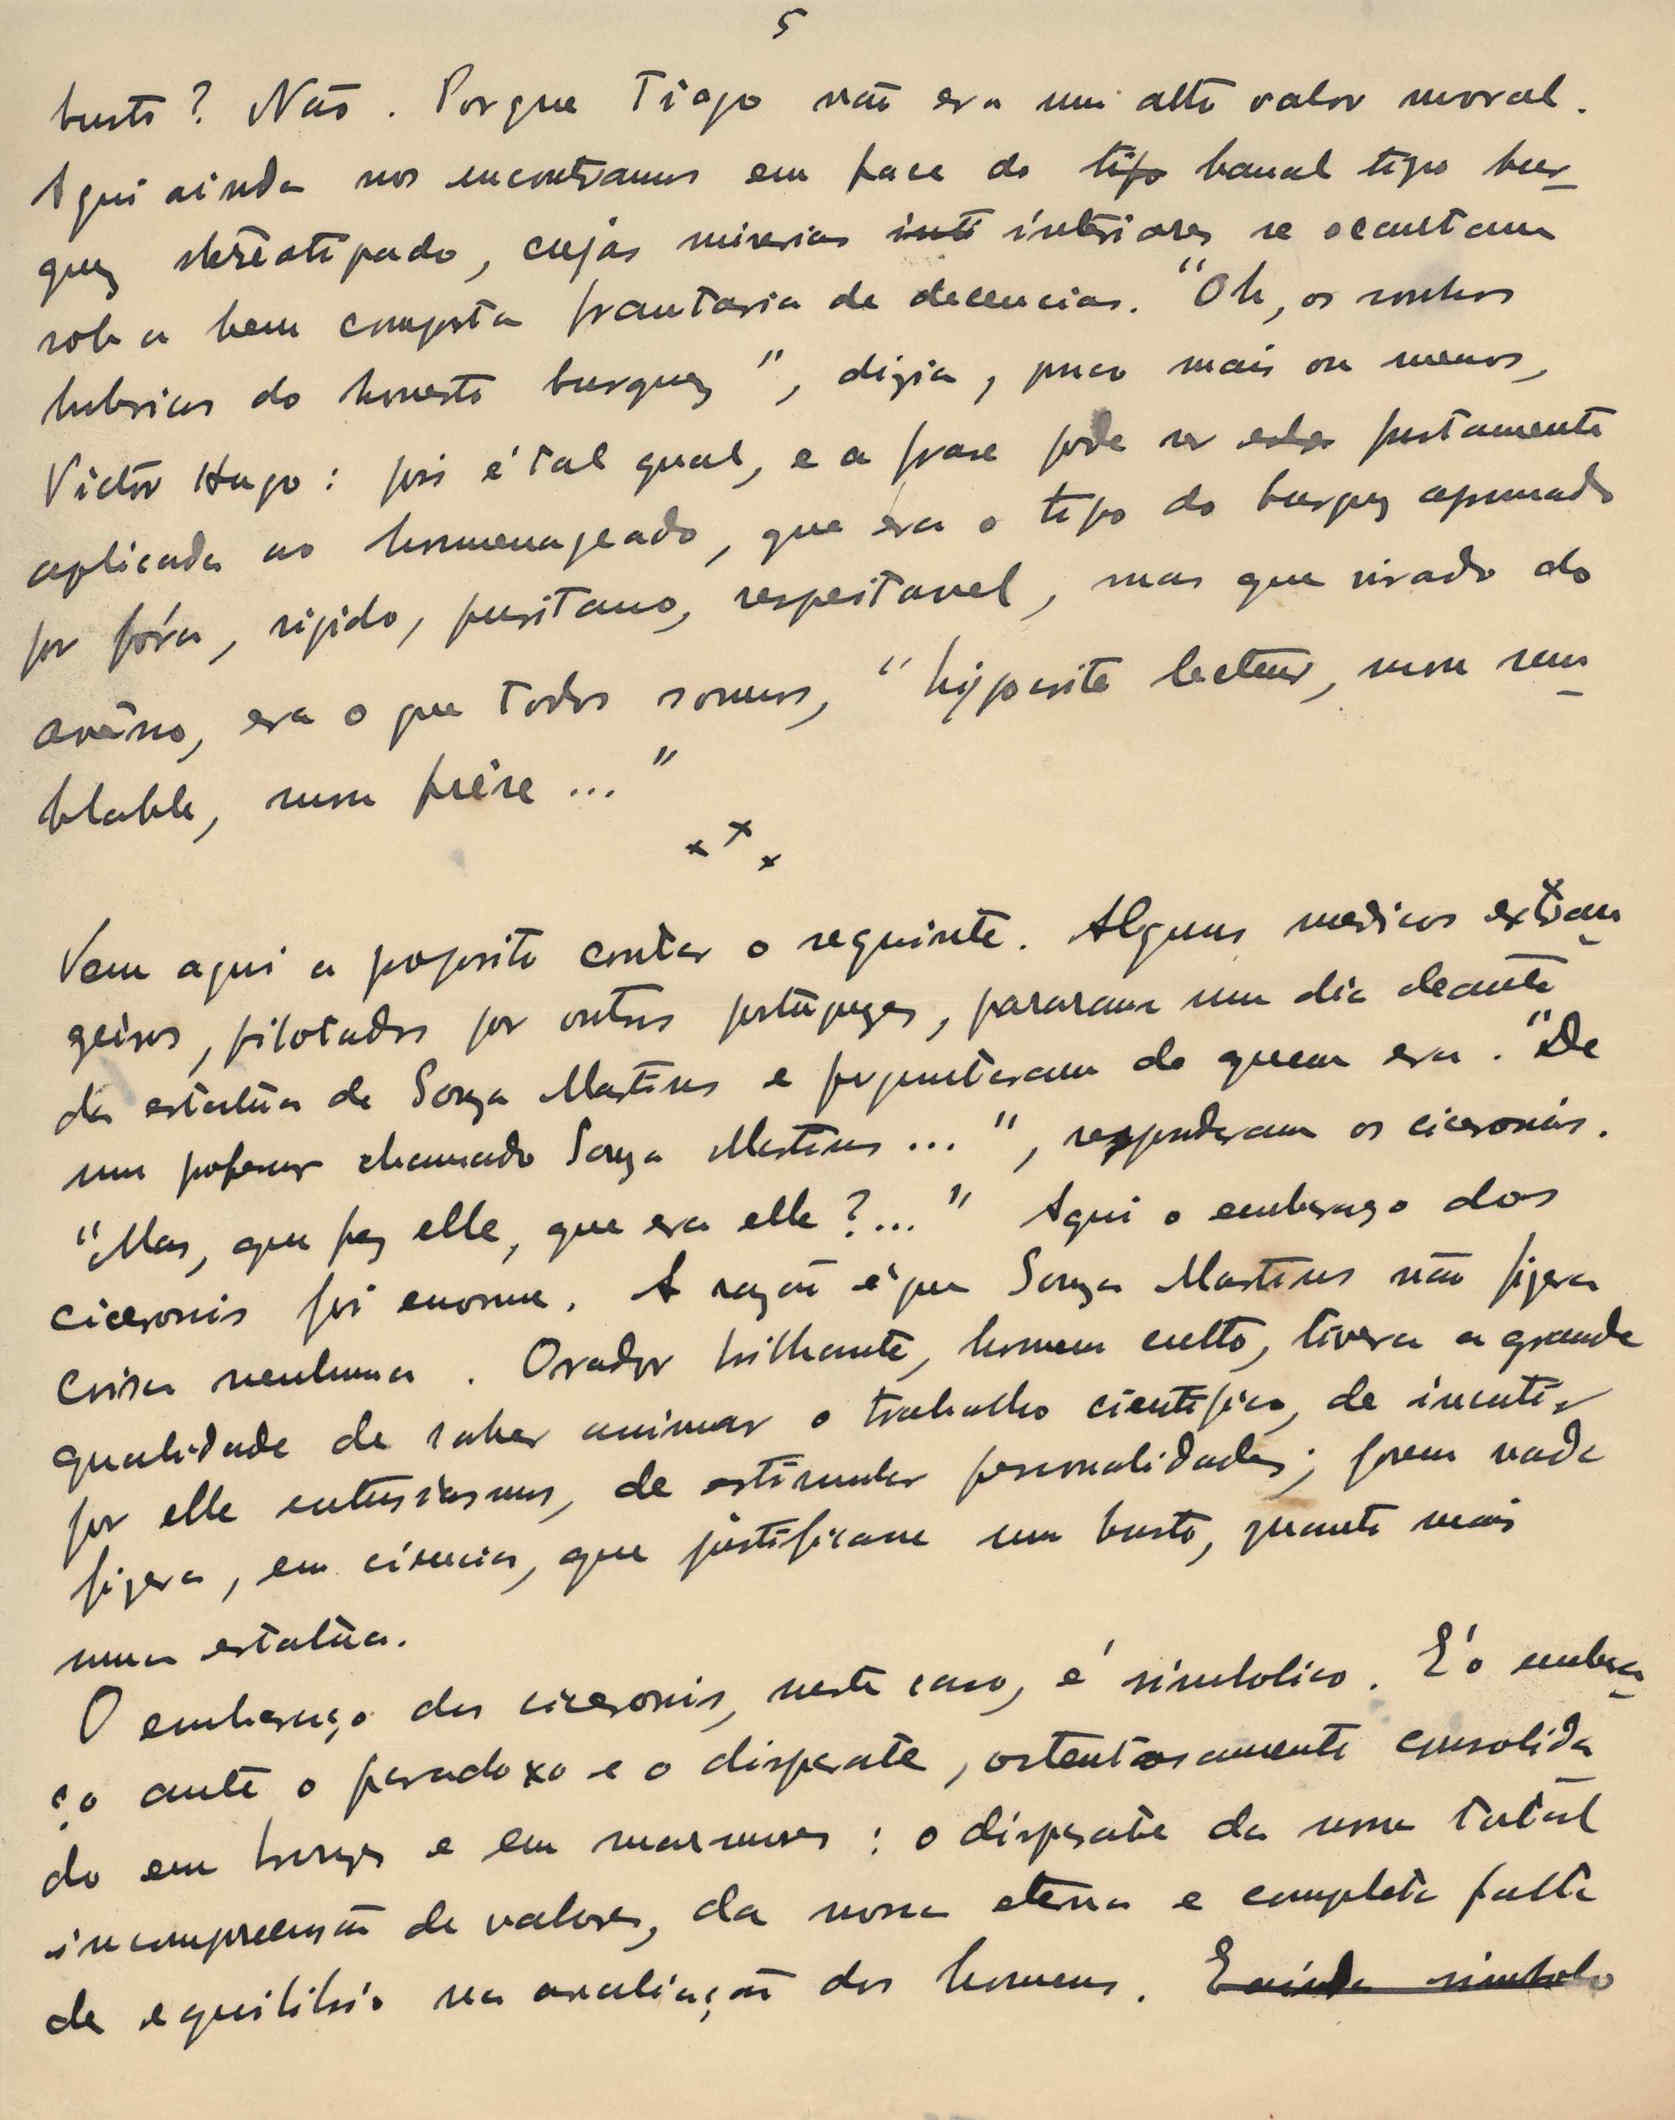 5
busto? Não. Porque Tiago não era um alto valor moral.
Aqui ainda nos encontramos em face do tipo banal tipo bur-
guez stereotipado, cujas miserias inte interiores se ocultam
sob a bem composta frantaria de decencias. "Oh, os sonhos
lubricos do honesto burguez", dizia, pouco mais ou menos,
Victor Hugo: pois é tal qual, e a frase pode ser justamente
aplicada ao hommenageado, que era o tipo do burguez aprumado
por fóra, rigido, puritano, respeitavel, mas que virado do
avêsso, era o que todos somos, "hypocrite lecteur, mon sem-
blable, mon frére ..."
x x x
Vem aqui a proposito contar o seguinte. Alguns medicos extran-
geiros, pilotados por outros portuguezes, pararam um dia deante
da estatua de Souza Martins e perguntaram de quem era. "De
um professor chamado Souza Martins ...", responderam os ciceronis.
"Mas, que fez elle, que era elle?..." Aqui o embaraço dos
ciceronis foi enorme. A razão é que Souza Martins não fizera
coisa nenhuma. Orador brilhante, homem culto, tivera a grande
qualidade de saber animar o trabalho cientifico, de incutir
por elle entusiasmos, de estimular personalidades; porem nada
fizera, em ciencia, que justificasse um busto, quanto mais
uma estatua.
O embaraço dos ciceronis, neste caso, é simbolico. E' o embara-
ço ante o paradoxo e o disparate, ostentosamente consolida-
do em bronzes e em marmores: o disparate da nossa total
incompreensão de valores, da nossa eterna e completa falta
de equilibrio na avaliação dos homens. E ainda simbolo